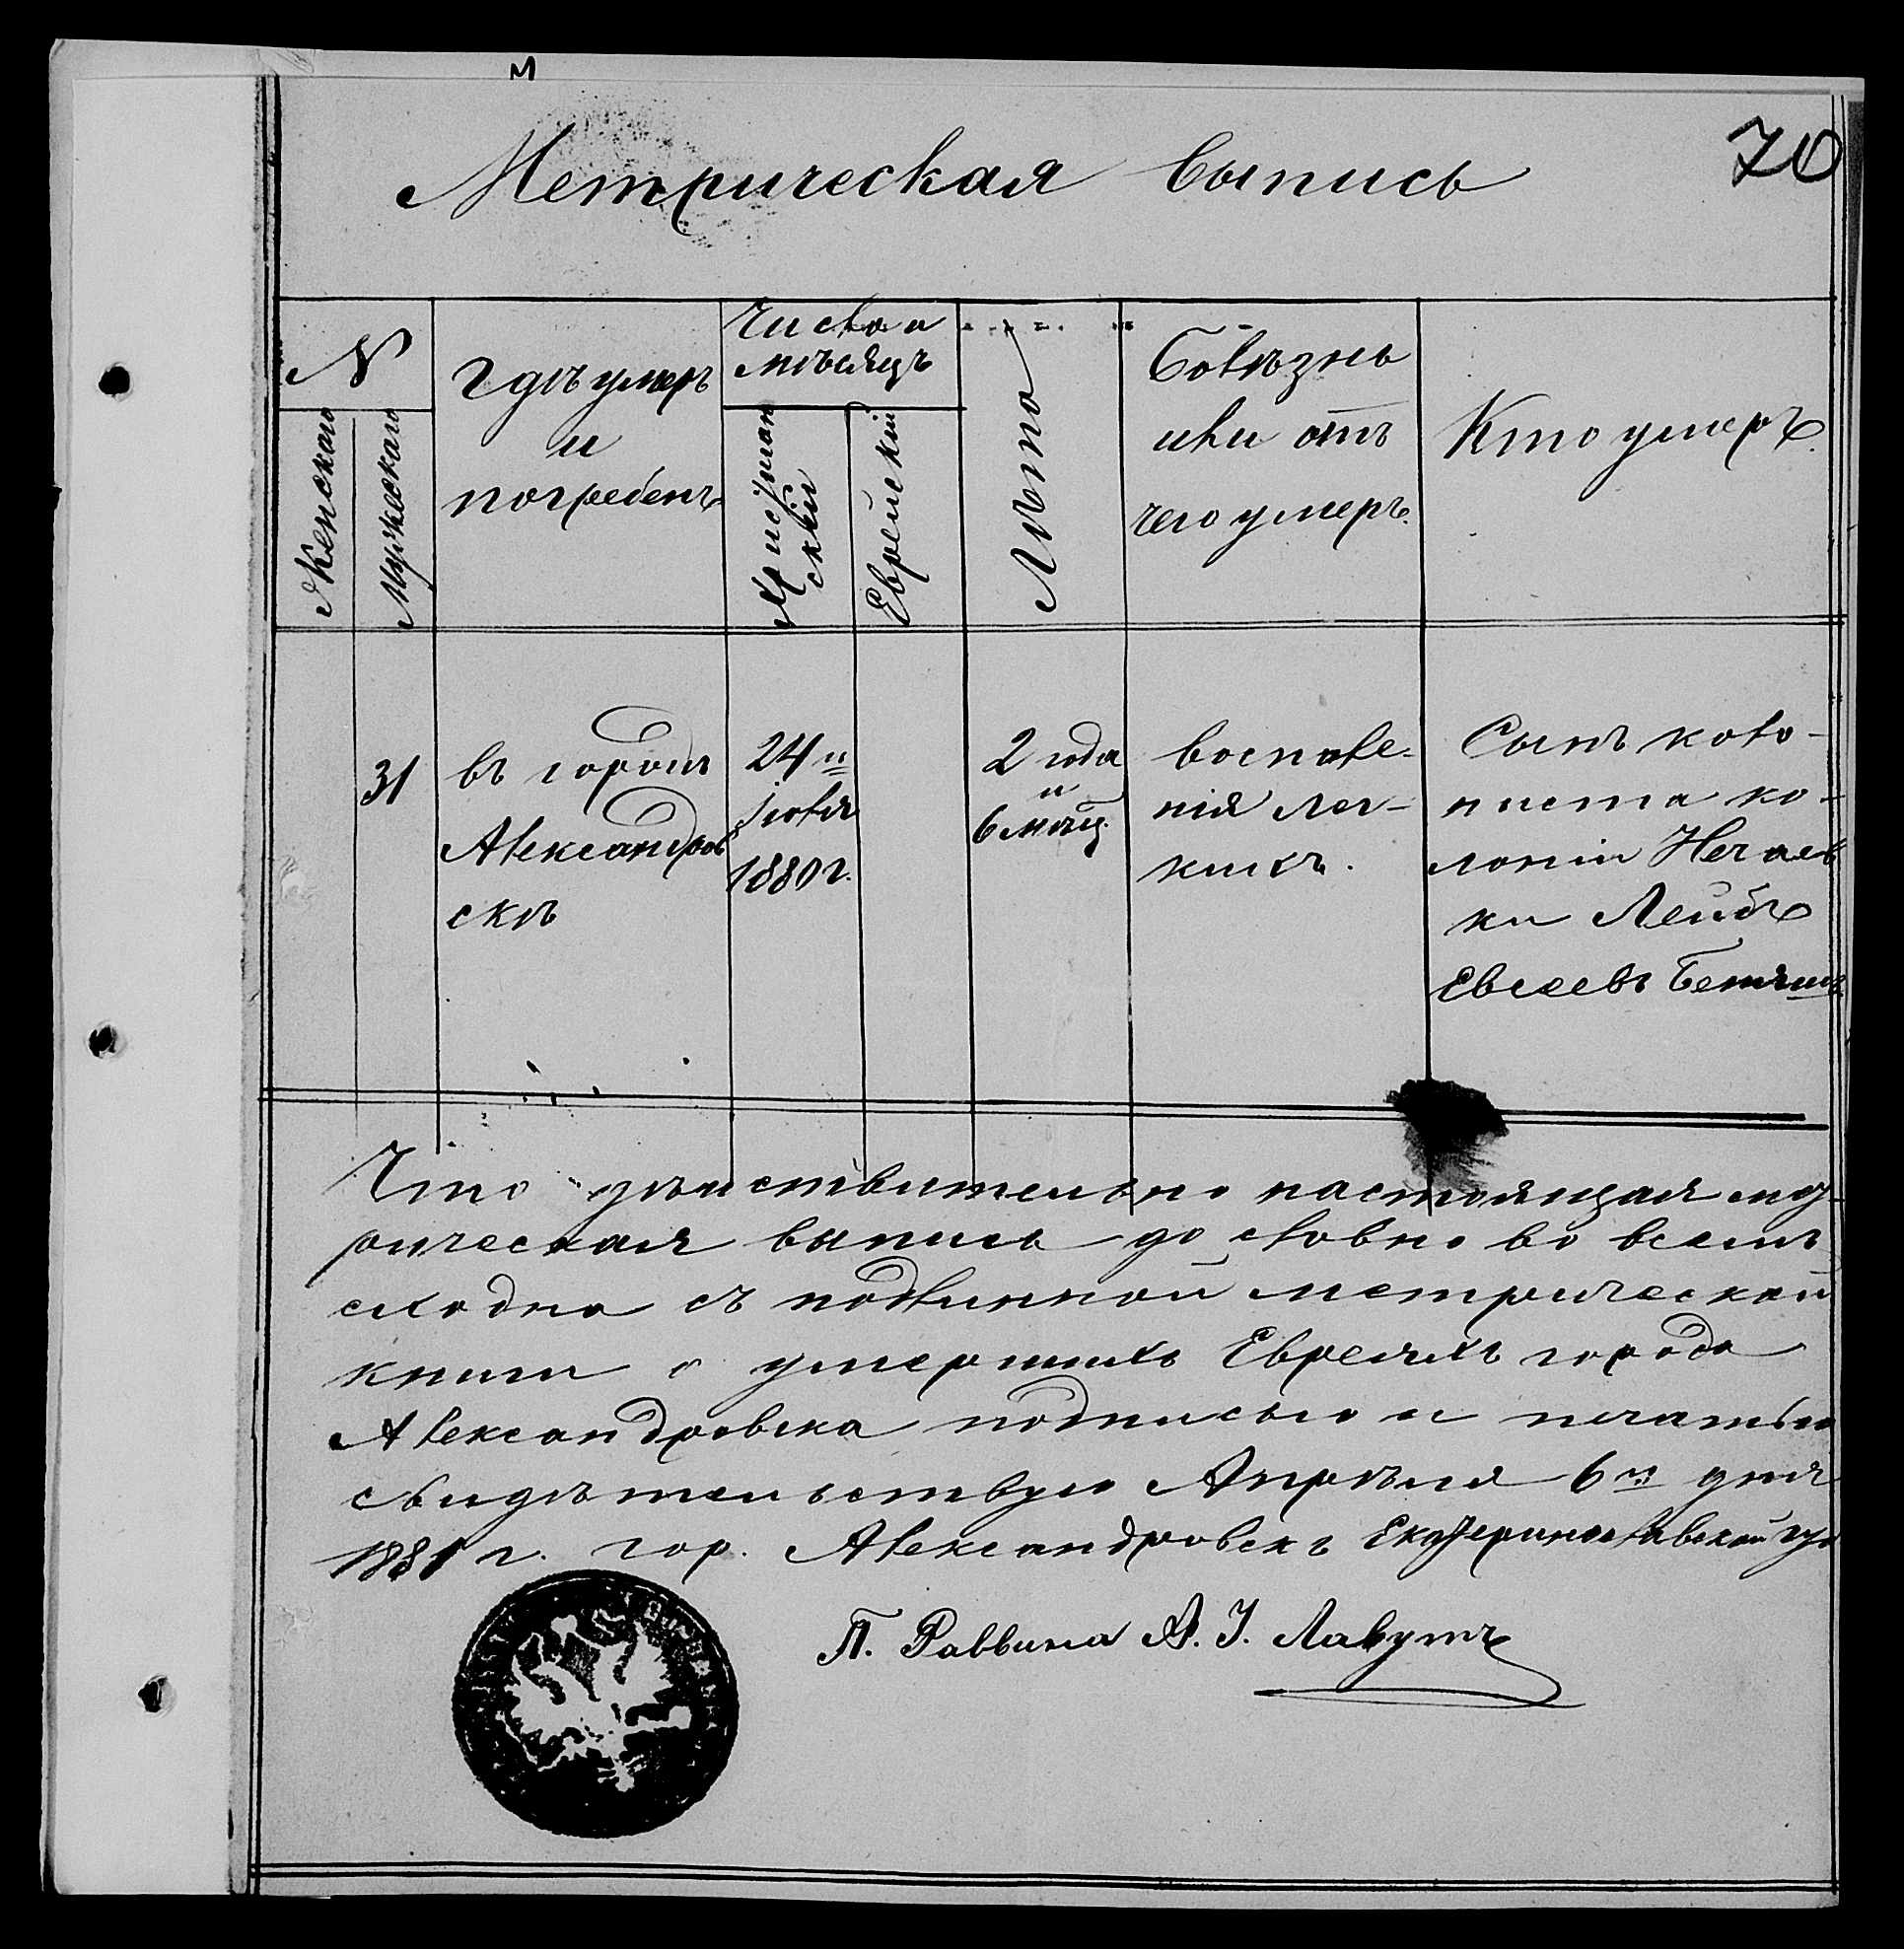 м
70
Метрическая выпись
N
Женскаго
Мужескаго
Гдѣ умеръ
и
погребенъ
Число и
мѣсяцъ
Христіан
скій
Еврейскій
Лѣта
Болѣзнь
или отъ
чего умеръ.
Кто умеръ.
31
въ городѣ
Александров
скѣ
24го
Іюля
1880 г.
2 года
и
6 мѣсц.
воспале-
нія лег-
кихъ.
Сынъ коло-
ниста ко-
лоніи Нечаев
ки Лейбъ
Евсеевъ
Что дѣйствительно настоящая мет
рическая выпись дословно во всемъ
сходна съ подлинной метрической
книги о умершихъ Евреяхъ города
Александровска подписью и печатью
свидѣтельствую Апрѣля 6го дня
1881 г. гор. Александровскъ Екатеринославской гу
П. Раввина А. І. Лавутъ